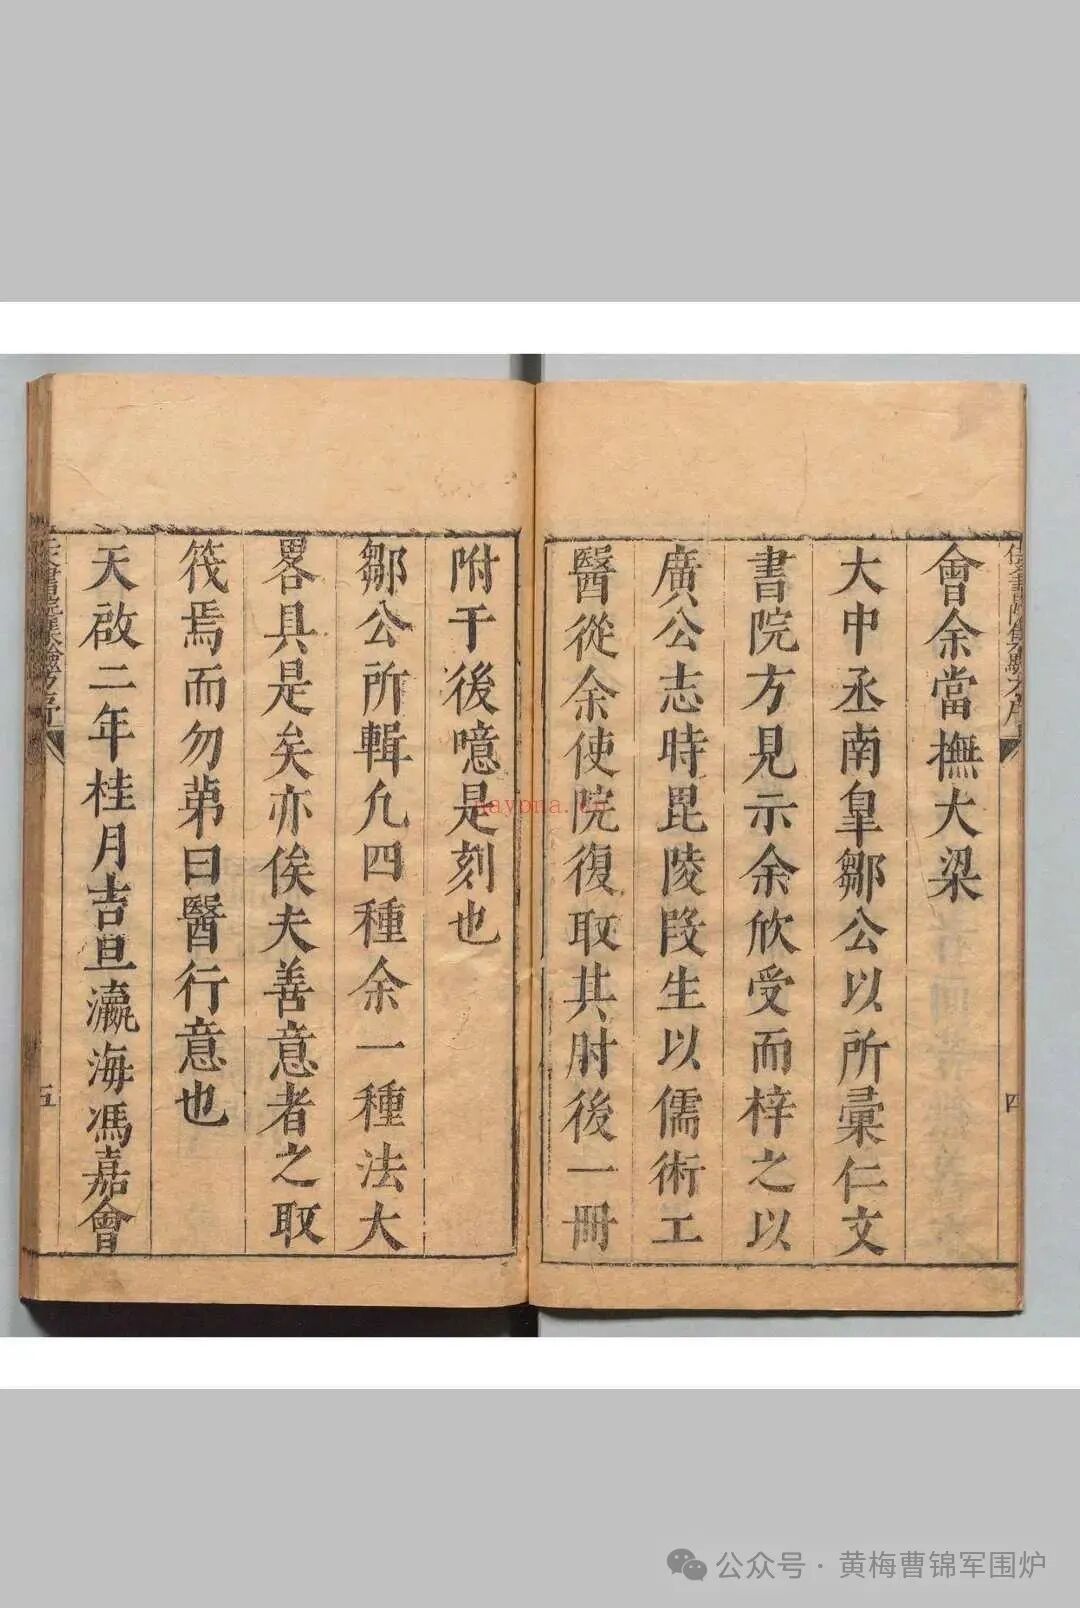 會余當撫大梁
大中丞南臯鄒公以所彚仁文
書院方見示余欣受而梓之以
廣公志時毘陵段生以儒術工
醫從余使院復取其肘後一冊
四
附于後噫是刻也
鄒公所輯凡四種余一種法大
畧具是矣亦俟夫善意者之取
筏焉而勿第曰醫行意也
天啟二年桂月吉旦瀛海馮嘉會
五
公众号 · 黄梅曹锦军围炉